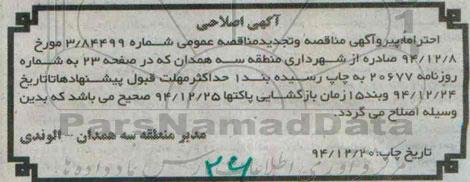 آگهی اصلاحی
احتراما پیرو آگهی مناقصه و تجدیدمناقصه عمومی شماره ۳/۸۴۴۹۹ مورخ
۹۴/۱۲/۸ صادره از شهرداری منطقه سه همدان که در صفحه ۲۳ به شماره
روزنامه ۲۰۶۷۷ به چاپ رسیده بند۱ حداکثرمهلت قبول پیشنهادهاتاتاریخ
۹۴/۱۲/۲۴ وبند۱۵زمان بازگشایی پاکتها ۹۴/۱۲/۲۵ صحیح می باشد که بدین
وسیله اصلاح می گردد.
مدیر منطقه سه همدان - الوندی
ParsNamadData
تاریخ چاپ:۹۴/۱۲/۲۰
۲۶